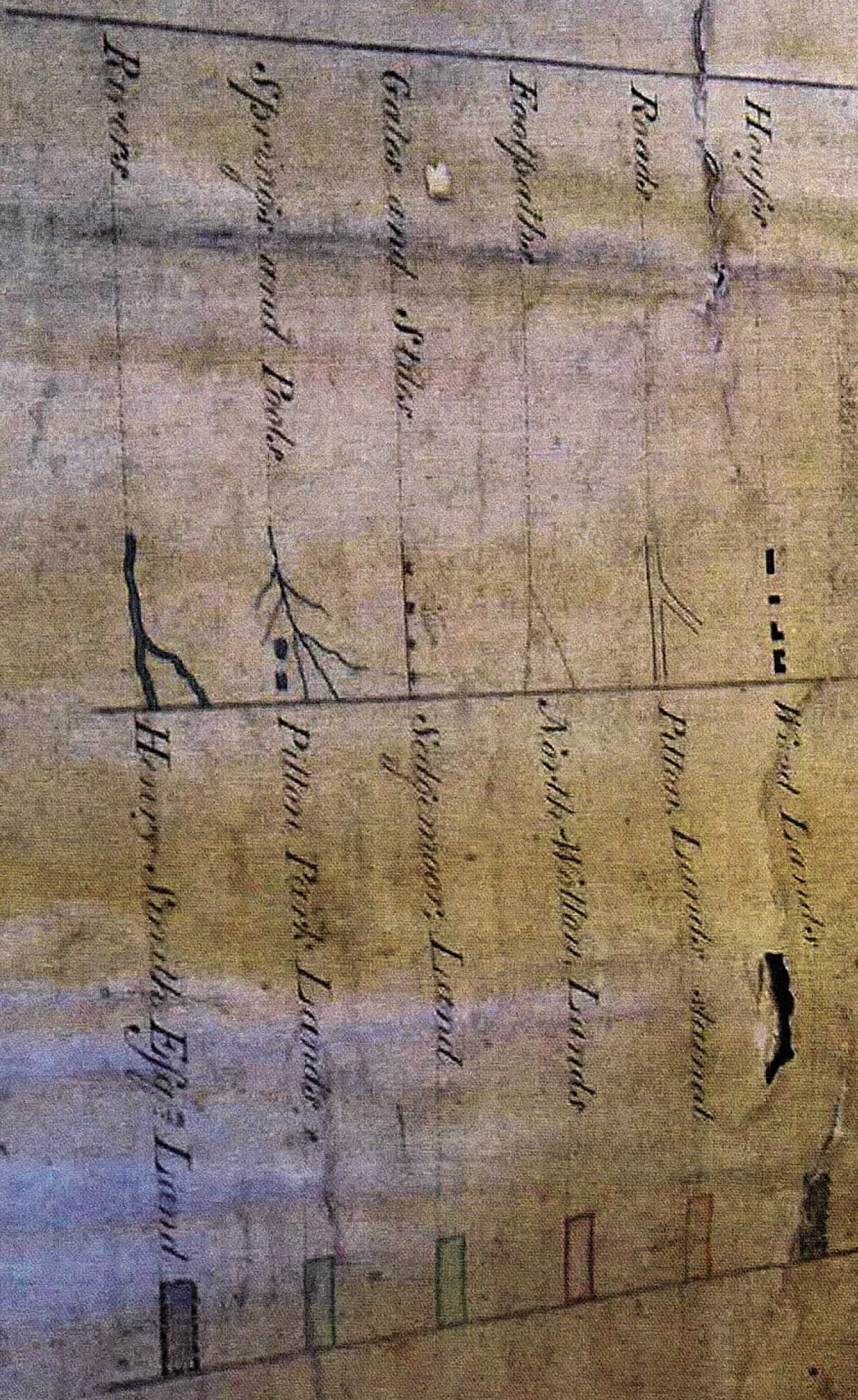 Houses
Roads
Footpaths
Gates and Stiles
Springs and Pools
Rivers
Wood Lands
Pilton Lands stained
North-Wotton Lands
Sedgemoor Land
Pilton Park Lands
Henry Smith Esq:r Land